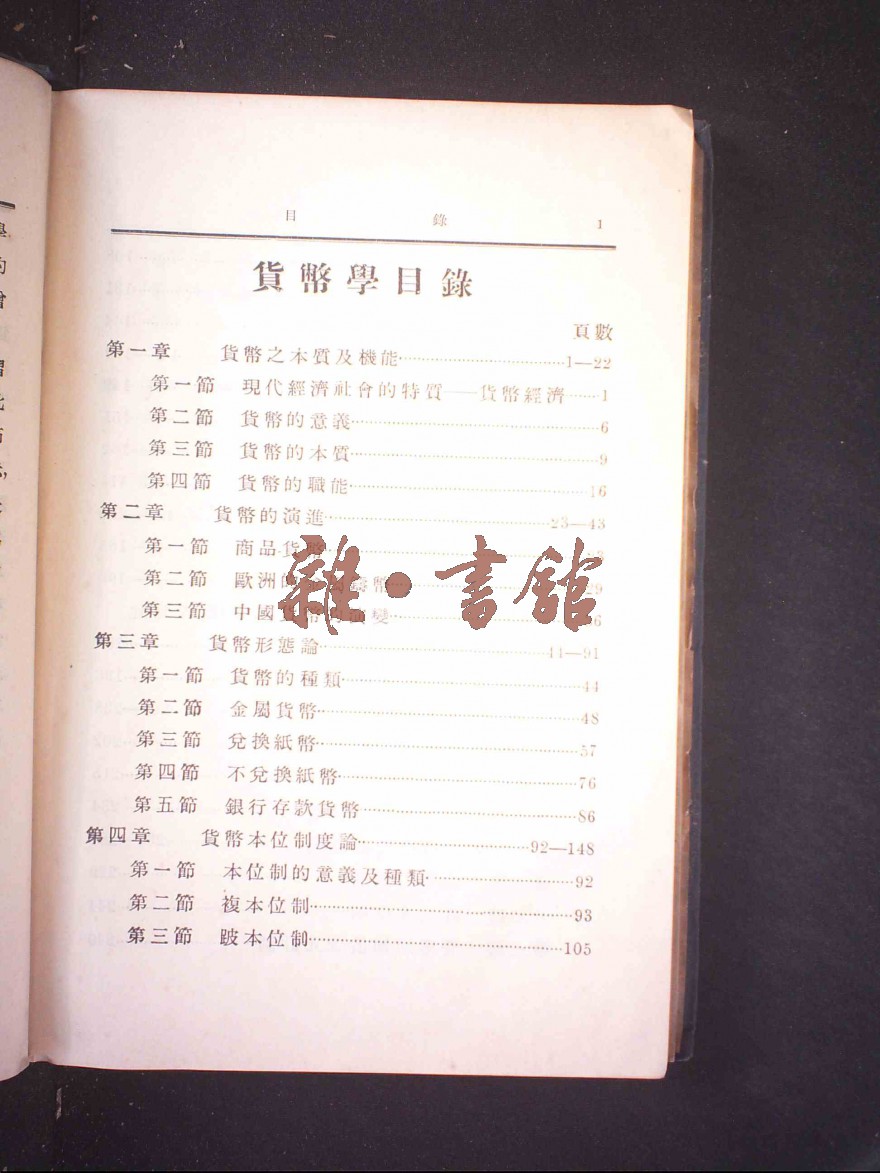 目錄 1
貨幣學目錄
頁數
第一章 貨幣之本質及機能……1—22
第一節 現代經濟社會的特質——貨幣經濟……1
第二節 貨幣的意義……6
第三節 貨幣的本質……9
第四節 貨幣的職能……16
第二章 貨幣的演進……23—43
第一節 商品貨幣……
第二節 歐洲的金屬鑄幣……29
第三節 中國貨幣的演變……
雜·書館
第三章 貨幣形態論……44—91
第一節 貨幣的種類……44
第二節 金屬貨幣……48
第三節 兌換紙幣……57
第四節 不兌換紙幣……76
第五節 銀行存款貨幣……86
第四章 貨幣本位制度論……92—148
第一節 本位制的意義及種類……92
第二節 複本位制……93
第三節 跛本位制……105